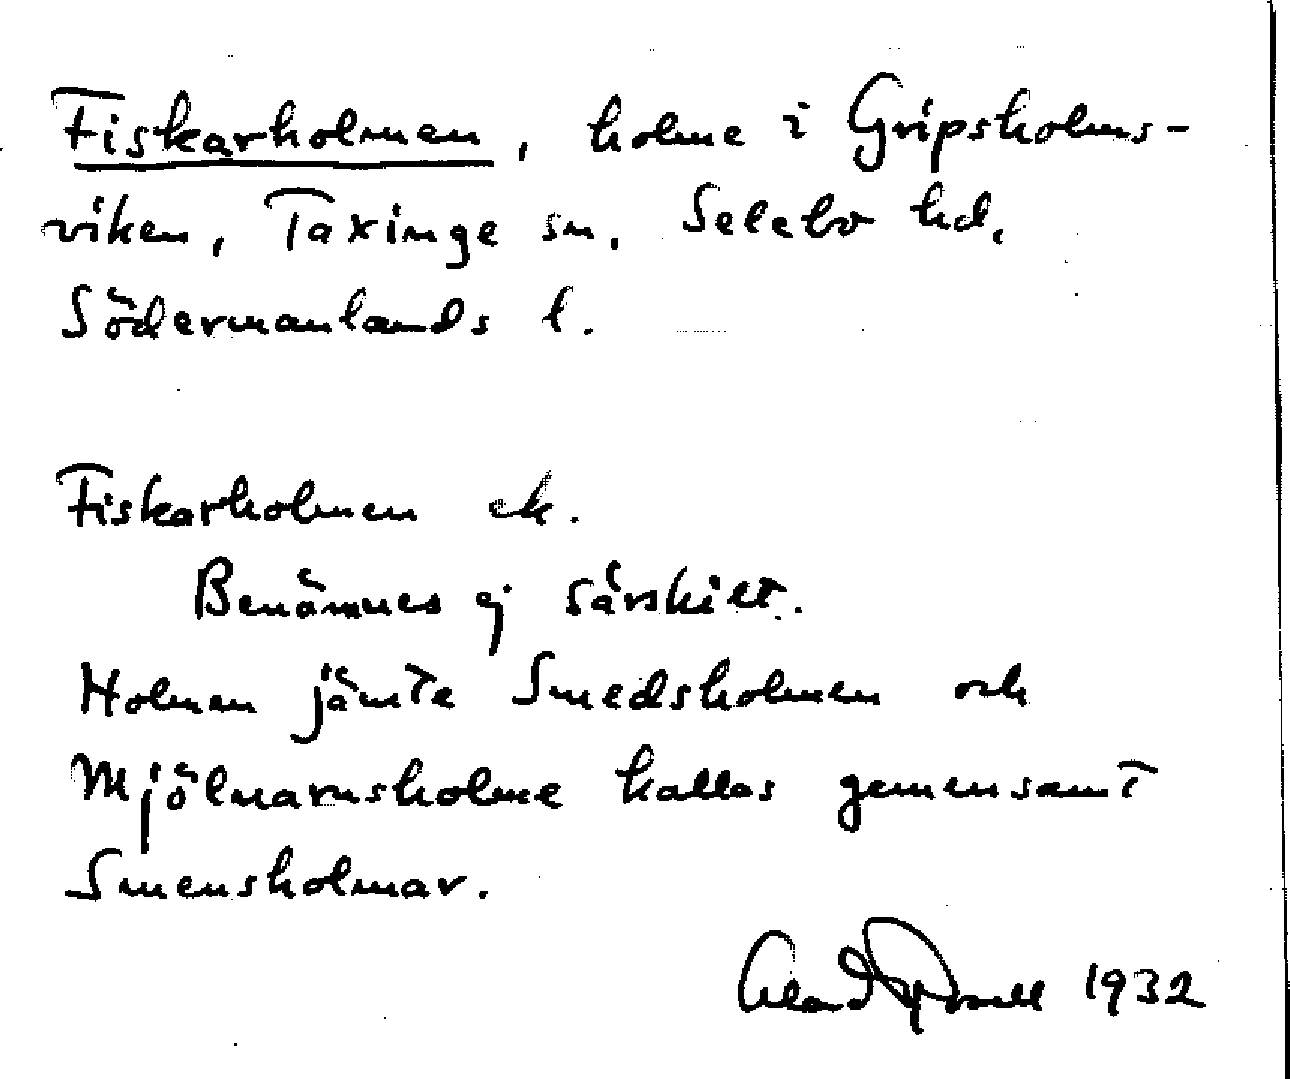 Fiskarholmen, holme i Gripsholms-
viken, Taxinge sn. Selebo hd.
Södermanlands l.
Fiskarholmen ek.
Benämnes ej särskilt.
Holmen jämte Smedsholmen och
Mjölnarnsholme kallas gemensamt
Smensholmar.
1932